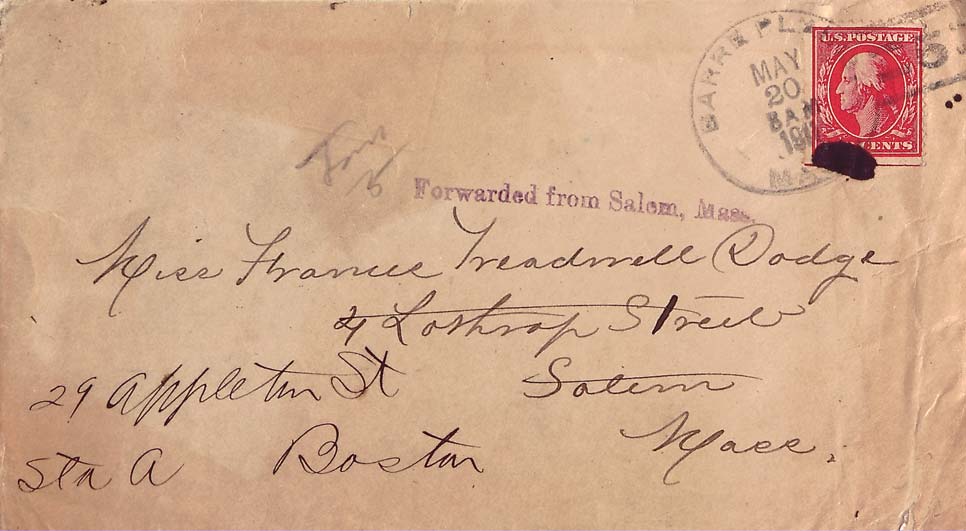 BARRE PL
MAY
20
8 AM
MA
U.S. POSTAGE
CENTS
5
For
Forwarded from Salem, Mass.
Miss Frances Treadwell Dodge
4 Lothrop Street
29 Appleton St Salem
Sta A Boston Mass.